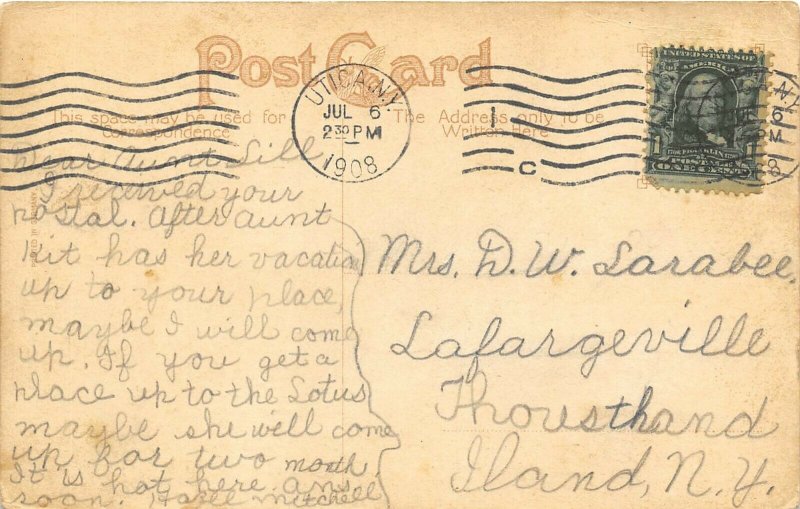 Post Card
This space may be used for
Correspondence
The Address only to be
Written Here
UTICA, N.Y.
JUL 6
2 30 PM
1908
C
UNITED STATES OF
AMERICA
FRANKLIN
POSTAGE
ONE CENT
Dear Aunt Lill
I received your
postal. After aunt
Kit has her vacation
up to your place,
maybe I will come
up. If you get a
place up to the Lotus
maybe she will come
up for two month
It is hot here. ans.
soon. Hazel Mitchell
Mrs. D. W. Larabee,
Lafargeville
Thousthand
Iland, N.Y.